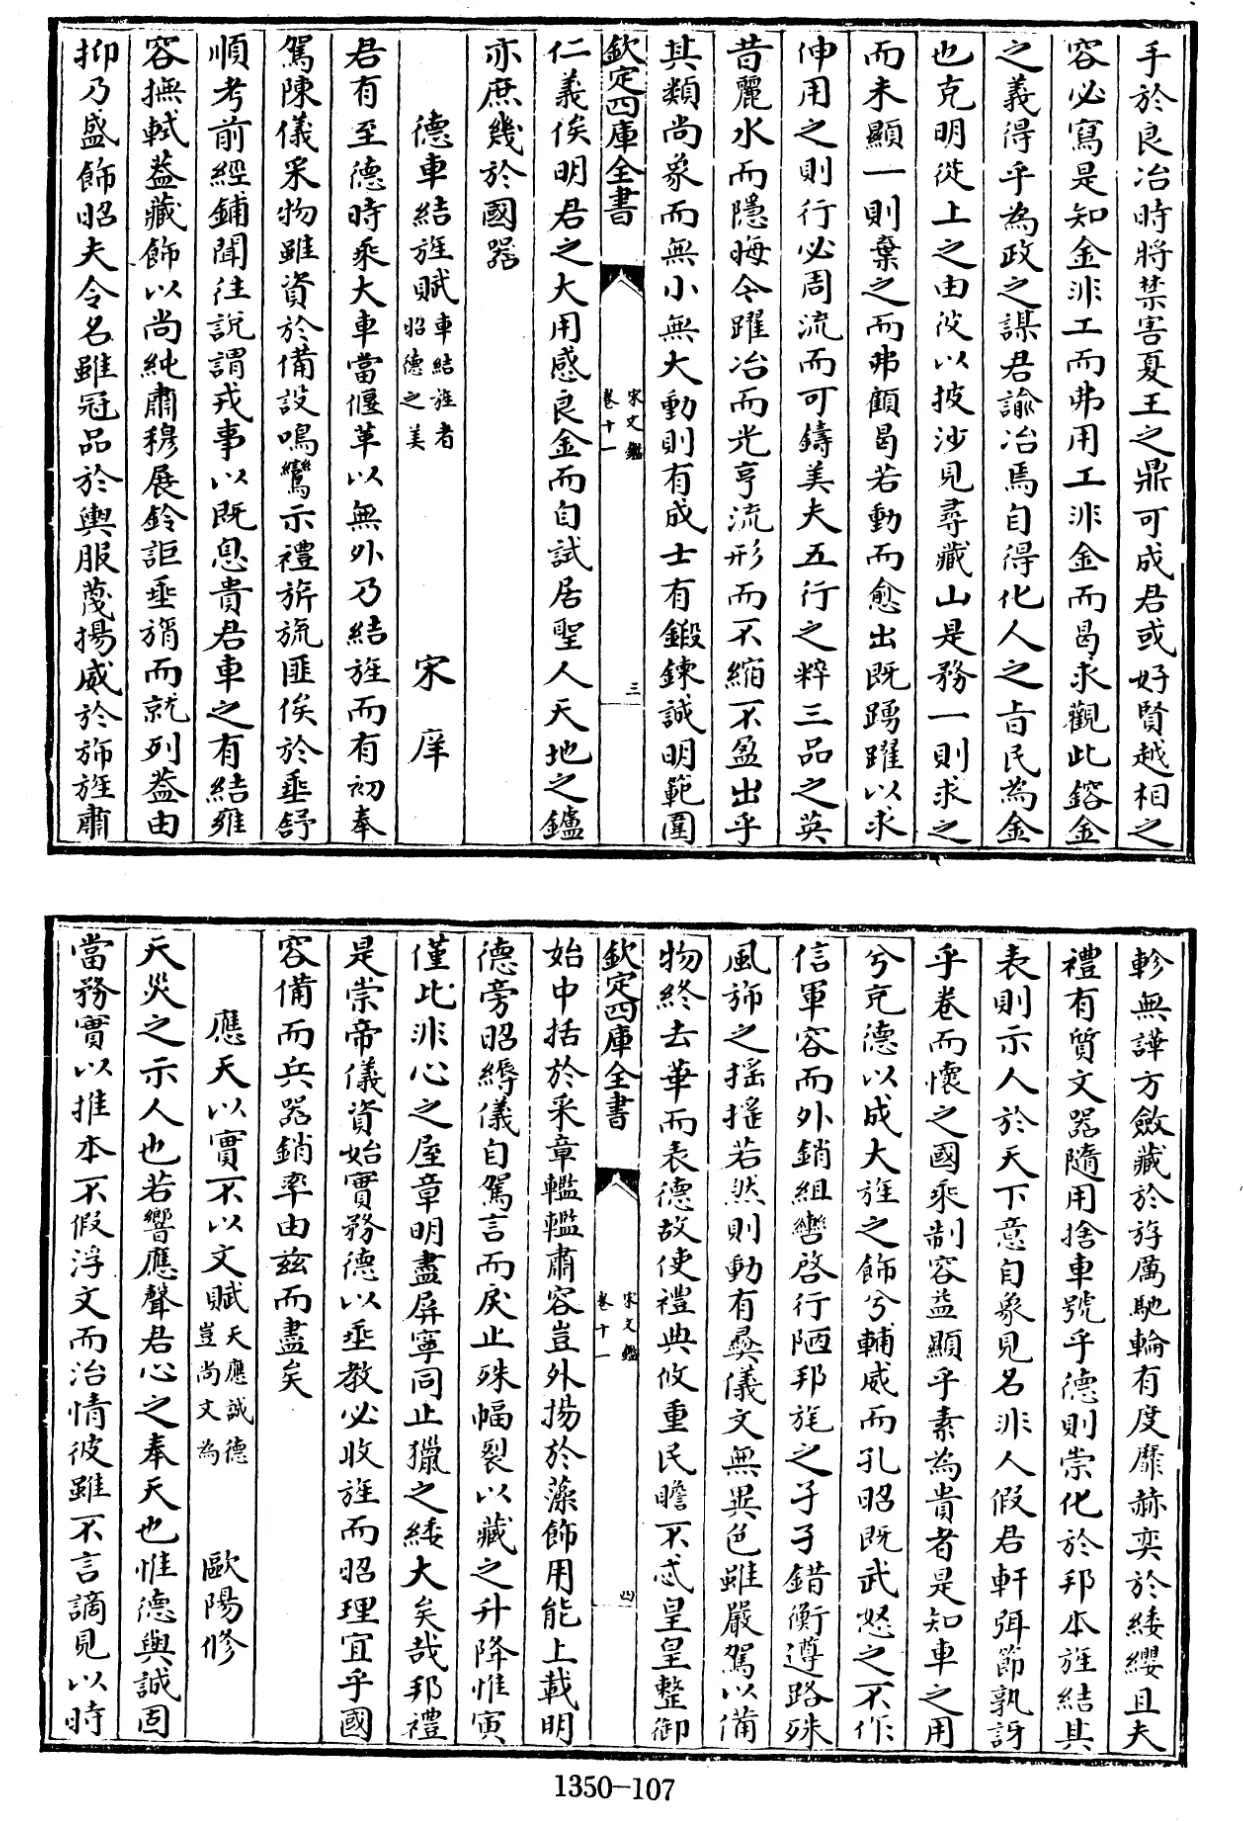 手於良冶時將禁害夏王之鼎可成君或好賢越相之
容必寫是知金非工而弗用工非金而曷求觀此鎔金
之義得乎為政之謀君諭冶焉自得化人之旨民為金
也克明從上之由彼以披沙見尋藏山是務一則求之
而未顯一則棄之而弗顧曷若動而愈出既踴躍以求
伸用之則行必周流而可鑄美夫五行之粹三品之英
昔麗水而隱晦今躍冶而光亨流形而不縮不盈出乎
其類尚象而無小無大動則有成士有鍛鍊誠明範圍
欽定四庫全書 宋文鑑 卷十一 三
仁義俟明君之大用感良金而自試居聖人天地之鑪
亦庶幾於國器
德車結旌賦 車結旌者昭德之美 宋庠
君有至德時乘大車當偃革以無外乃結旌而有初奉
駕陳儀采物雖資於備設鳴鸞示禮旂旒匪俟於垂舒
順考前經鋪聞往說謂戎事以既息貴君車之有結雍
容撫軾蓋藏飾以尚純肅穆展鈴詎垂旓而就列蓋由
抑乃盛飾昭夫令名雖冠品於輿服蔑揚威於斾旌肅
軫無譁方斂藏於斿厲馳輪有度靡赫奕於緌纓且夫
禮有質文器隨用捨車號乎德則崇化於邦本旌結其
表則示人於天下意自象見名非人假君軒弭節孰訝
乎卷而懷之國乘制容益顯乎素為貴者是知車之用
兮克德以成大旌之飾兮輔威而孔昭既武怒之不作
信軍容而外銷組轡啓行陋邦旄之孑孑錯衡遵路殊
風斾之揺揺若然則動有彜儀文無異色雖嚴駕以備
物終去華而表德故使禮典攸重民瞻不忒皇皇整御
欽定四庫全書 宋文鑑 卷十一 四
始中括於采章轞轞肅容豈外揚於藻飾用能上載明
德旁昭縟儀自駕言而戾止殊幅裂以藏之升降惟寅
僅比非心之屋章明盡屏寧同止獵之緌大矣哉邦禮
是崇帝儀資始實務德以垂教必收旌而昭理宜乎國
容備而兵器銷率由兹而盡矣
應天以實不以文賦 天應誠德豈尚文為 歐陽修
天災之示人也若響應聲君心之奉天也惟德與誠固
當務實以推本不假浮文而治情彼雖不言謫見以時
1350—107